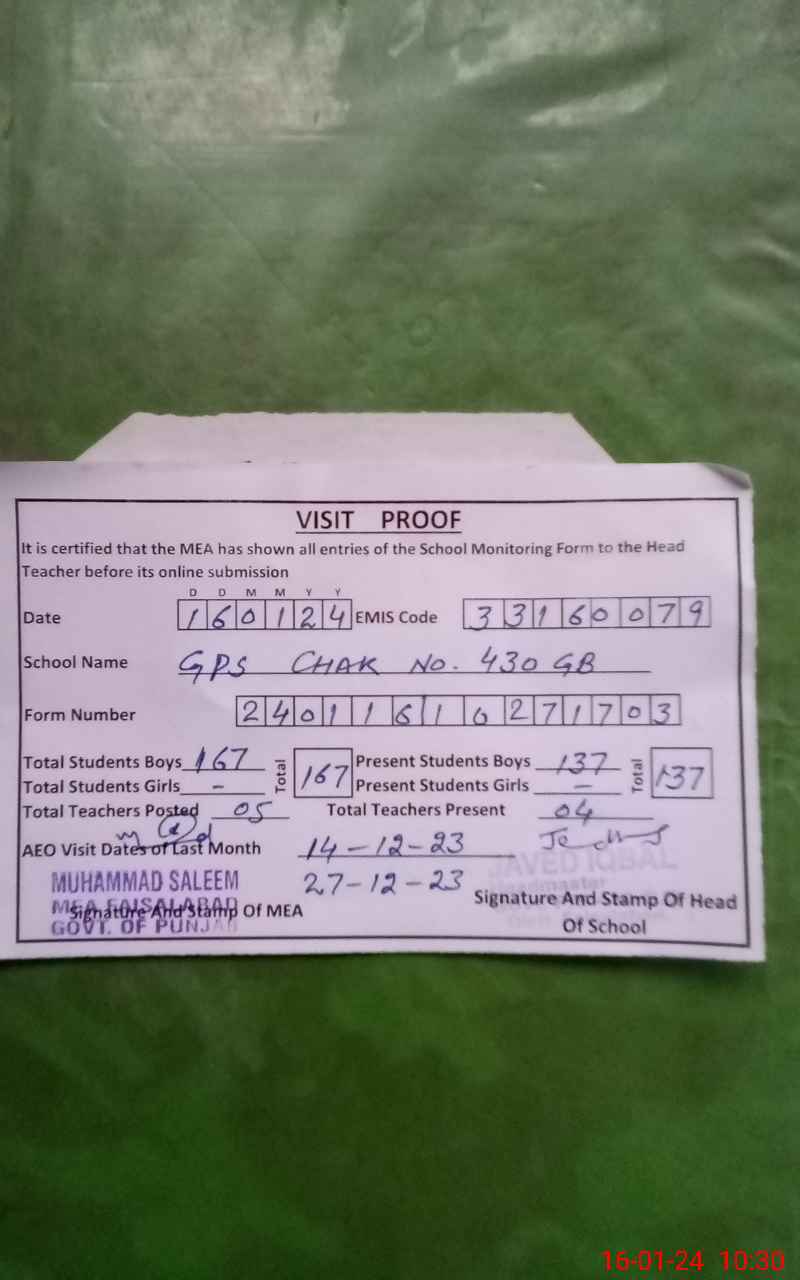 VISIT PROOF
It is certified that the MEA has shown all entries of the School Monitoring Form to the Head
Teacher before its online submission
D D M M Y Y
Date 160124 EMIS Code 33160079
School Name GPS CHAK NO. 430 GB
Form Number 240116161027 1703
Total Students Boys 167 Total 167 Present Students Boys 137 Total 137
Total Students Girls - Present Students Girls -
Total Teachers Posted 05 Total Teachers Present 04
AEO Visit Dates of Last Month 14-12-23
27-12-23
JAVED IQBAL
Headmaster
MUHAMMAD SALEEM
MEA FAISALABAD
GOVT. OF PUNJAB
Signature And Stamp Of MEA
Signature And Stamp Of Head
Of School
16-01-24 10:30